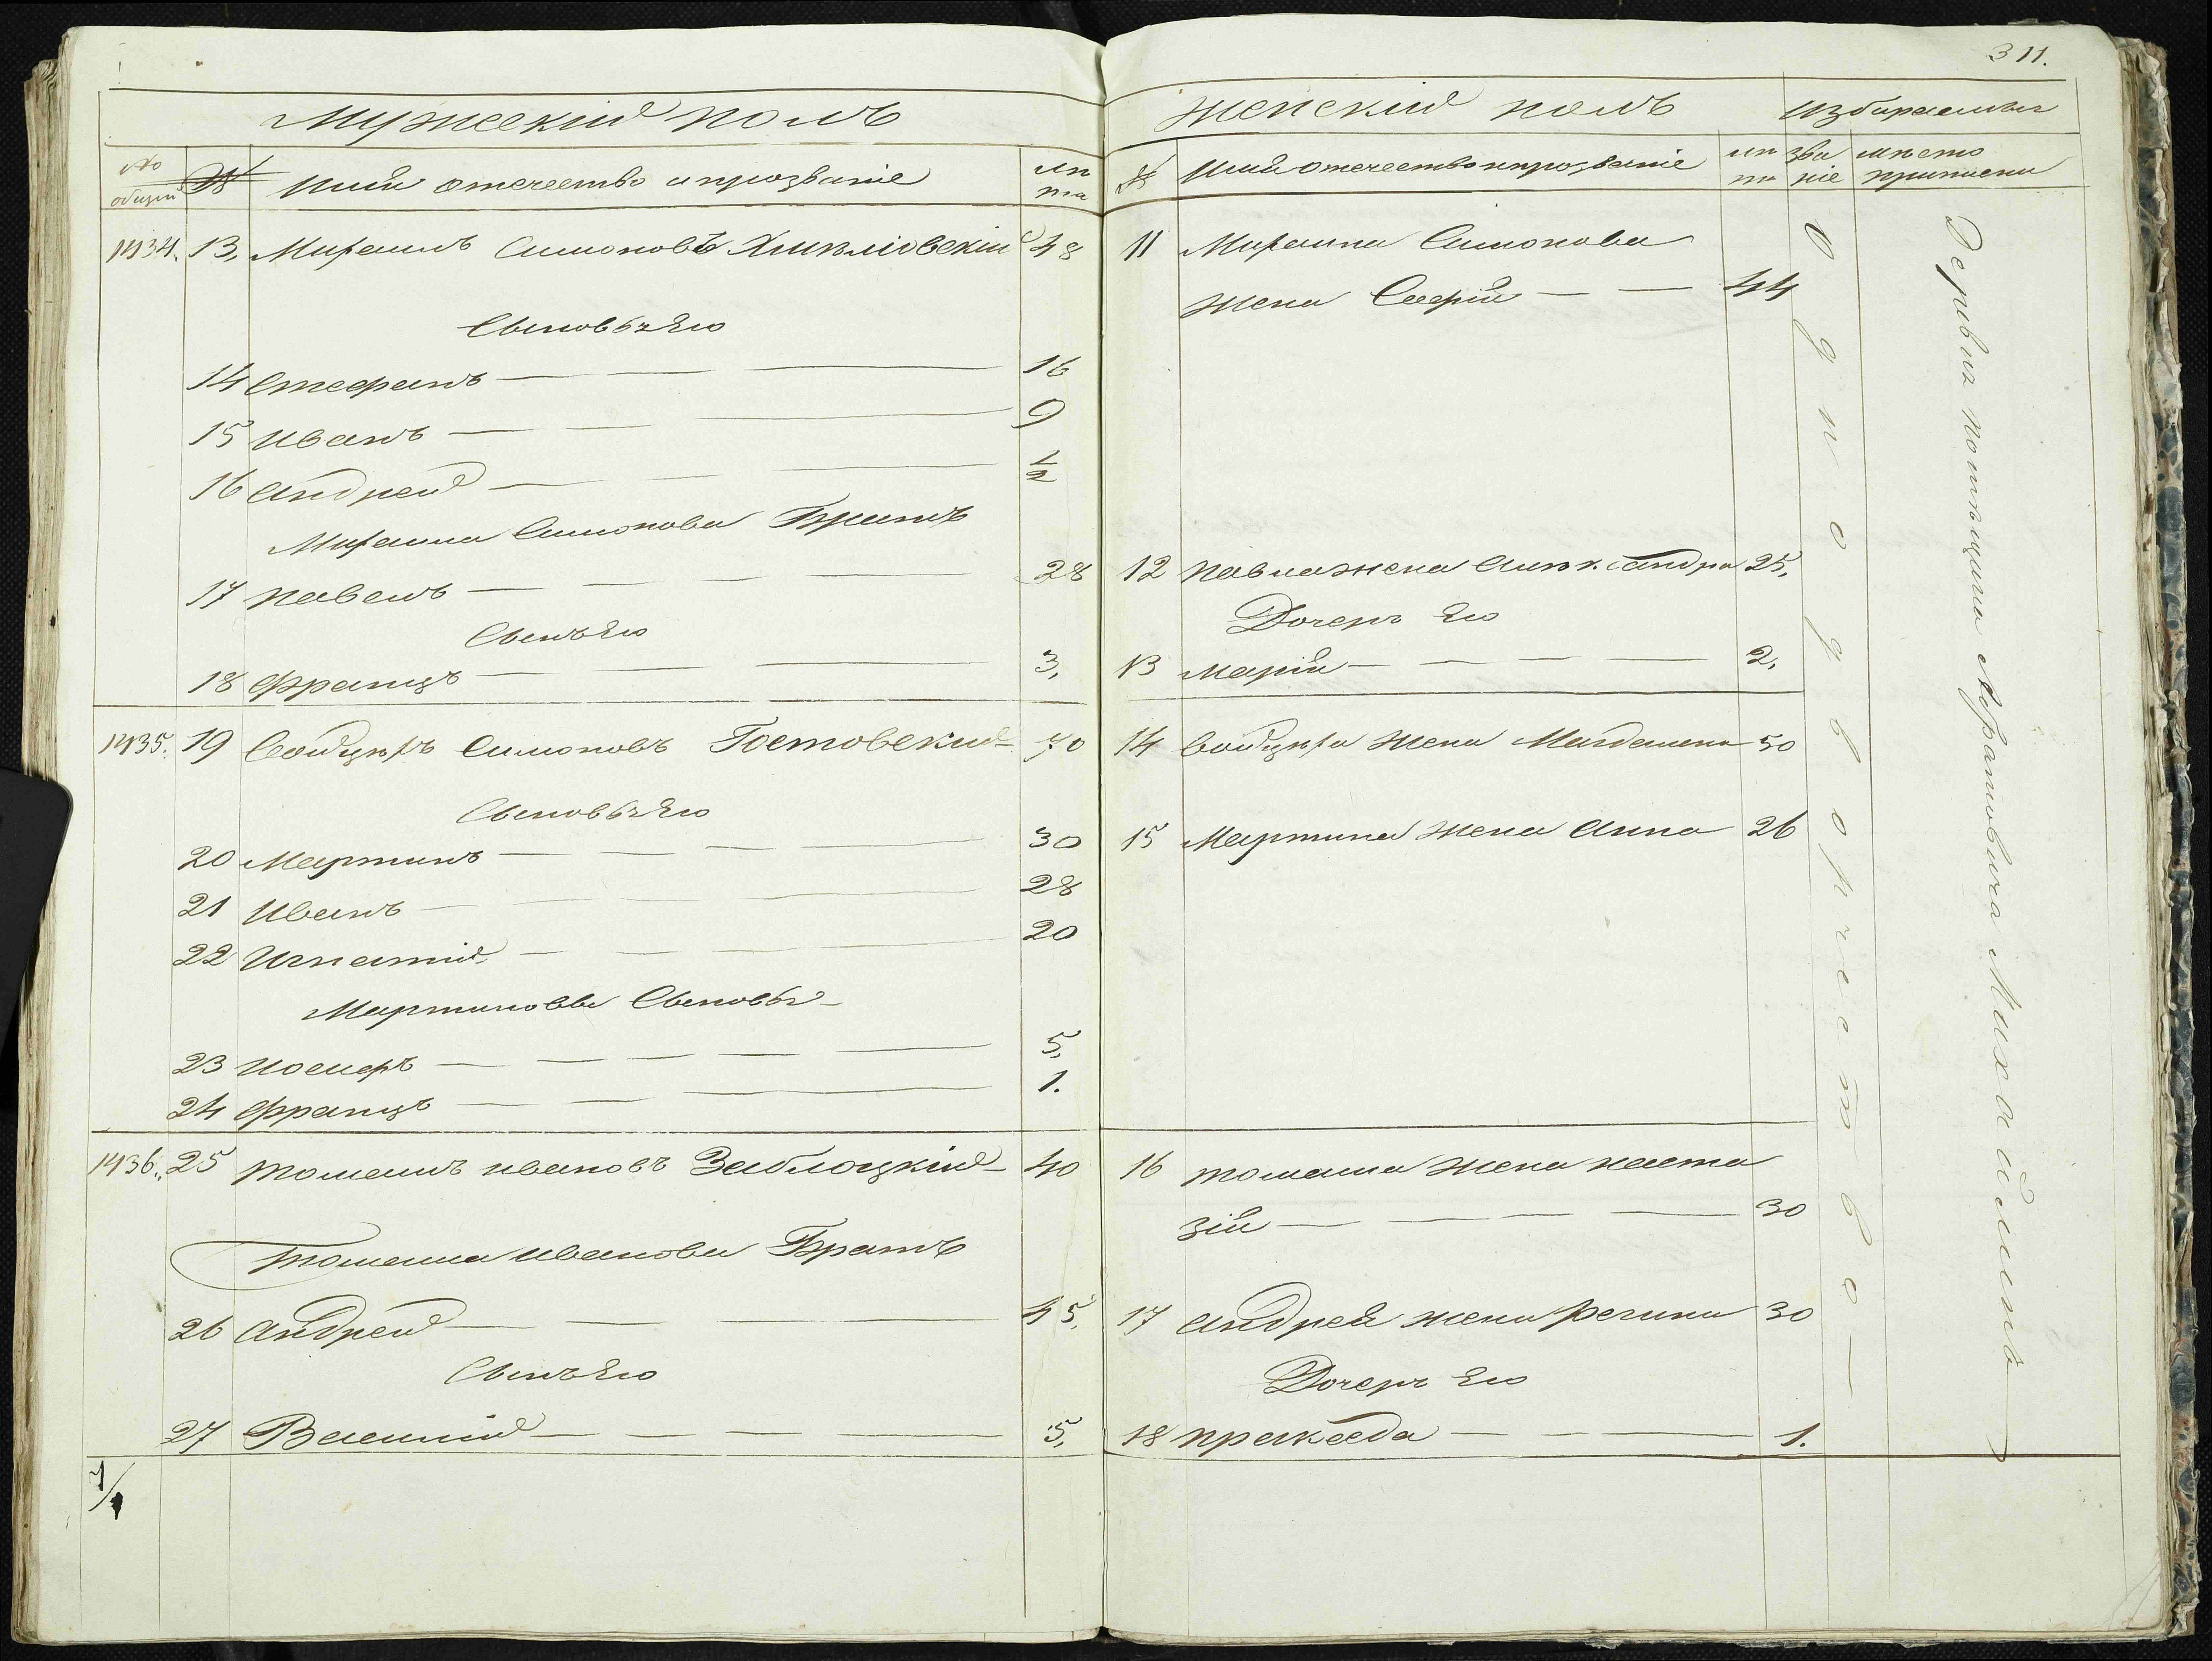 311.
Мужескій полъ
№ общій
№
Имя отечество и прозваніе
лѣта
1434. 13, Михаилъ Симоновъ Хмѣлювскій 48
Сыновья Его
14 Стефанъ — — — 16
15 Иванъ — — — 9
16 Андрей — — — 1/2
Михаила Симонова Братъ
17 Павелъ — — — 28
Сынъ Его
18 Францъ — — — 3,
1435. 19 Войцѣхъ Симоновъ Гостовскій 70
Сыновья Его
20 Мартинъ — — — — 30
21 Иванъ — — — — 28
22 Игнатій — — — 20
Мартиновы Сыновья
23 Іосифъ — — — — — 5,
24 Францъ — — — 1.
1436. 25 Томашъ Ивановъ Заблоцкій 40
Томаша Иванова Братъ
26 Андрей — — — — 45,
Сынъ Его
27 Василій — — — — 5,
1/
Женскій полъ
Избираемыя
№
Имя отечество и прозваніе
лѣта
званіе
мѣсто приписки
11 Михаила Симонова
жена Софія — — 44
12 Павла жена Алѣксандра 25,
Дочерь Его
13 Марія — — — — 2,
14 Войцѣха Жена Магдалена 50
15 Мартина Жена Анна 26
16 Томаша Жена Наста
зія — — — — 30
17 Андрея жена Регина 30
Дочерь Его
18 Пракседа — — — 1.
Однодворчество —
Деревня помѣщика Абрамовича Михайлина